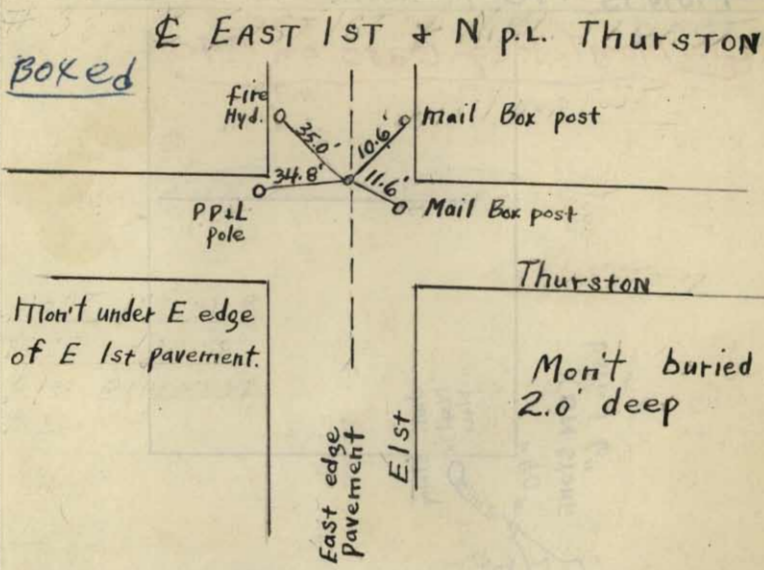 ℄ EAST 1ST & N P.L. THURSTON
Boxed
fire
Hyd.
Mail Box post
35.0'
10.6'
34.8'
11.6'
PP&L
pole
Mail Box post
Thurston
Mon't under E edge
of E 1st pavement.
Mon't buried
2.0' deep
East edge
Pavement
E. 1st